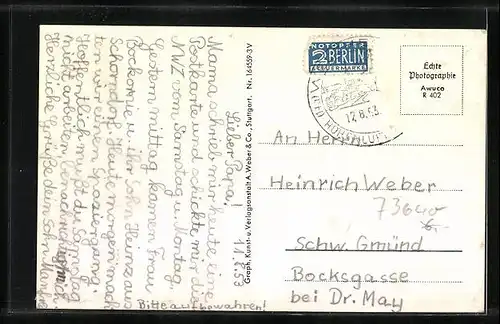 11.8.53
Lieber Papa!
Mama schrieb mir heute eine
Postkarte und schickte mir die
NWZ vom Samstag u. Montag.
Gestern mittag kamen Frau
u. ihr Sohn Heinz aus
Schorndorf. Heute morgen mach
ten wir einen Spaziergang.
Hoffentlich mußt du Samstag
nicht arbeiten.
Herzliche Grüße dein Sohn
Bitte aufbewahren!
Graph. Kunst- u. Verlagsanstalt A. Weber & Co., Stuttgart. Nr. 164559-3V
NOTOPFER
2 BERLIN
STEUERMARKE
12.8.53
Echte
Photographie
Awuco
R 402
An Herrn
Heinrich Weber
73640
6.-
Schw. Gmünd
Bocksgasse
bei Dr. May